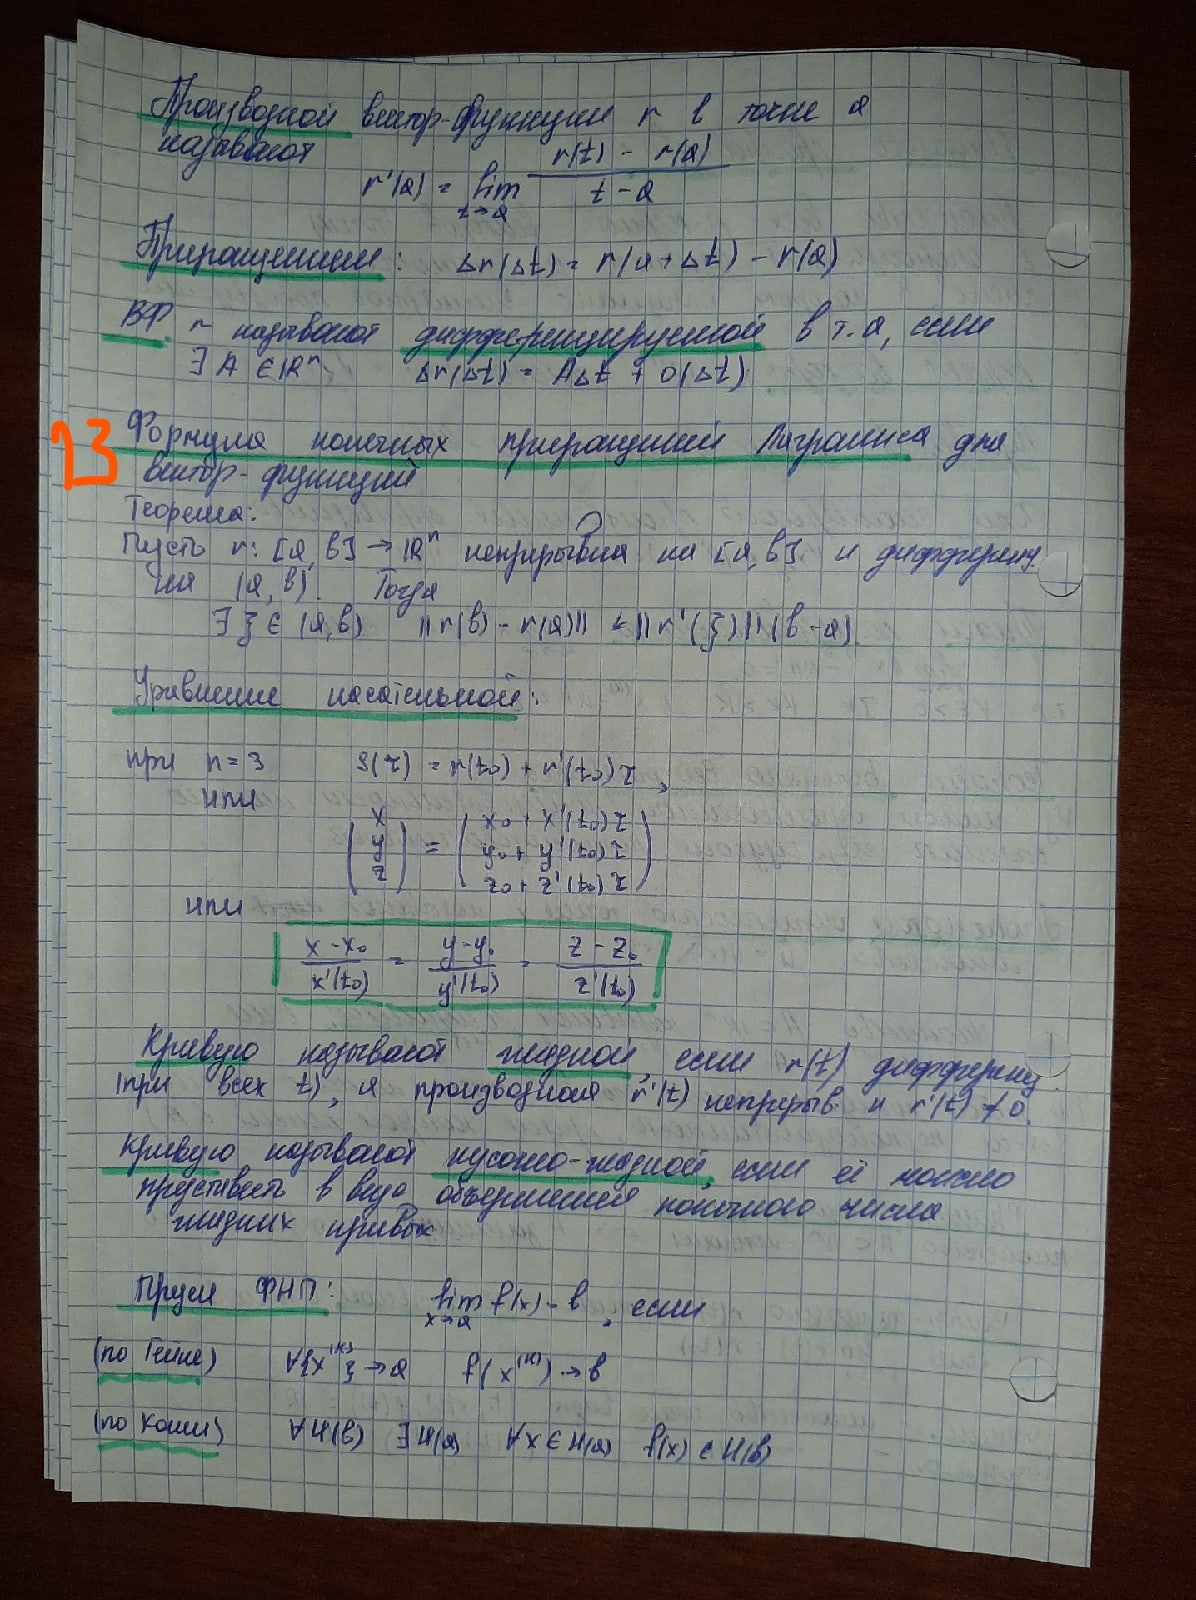 Производной вектор-функции r в точке a
называют
r'(a) = lim t→a (r(t) - r(a)) / (t - a)
Приращением: Δr(Δt) = r(a+Δt) - r(a)
ВФ r называют дифференцируемой в т. a, если
∃ A ∈ ℝⁿ Δr(Δt) = AΔt + o(Δt)
23
Формула конечных приращений Лагранжа для
вектор-функций
Теорема:
Пусть r: [a, b] → ℝⁿ непрерывна на [a, b] и дифференц.
на (a, b). Тогда
∃ ξ ∈ (a, b) ||r(b) - r(a)|| ≤ ||r'(ξ)|| (b-a)
Уравнение касательной:
при n = 3 s(τ) = r(t₀) + r'(t₀)τ,
или
(x y z) = (x₀ + x'(t₀)τ y₀ + y'(t₀)τ z₀ + z'(t₀)τ)
или
(x - x₀)/x'(t₀) = (y - y₀)/y'(t₀) = (z - z₀)/z'(t₀)
Кривую называют гладкой, если r(t) дифференц.
(при всех t), а производная r'(t) непрерыв. и r'(t) ≠ 0.
Кривую называют кусочно-гладкой, если её можно
представить в виде объединения конечного числа
гладких кривых
Предел ФНП: lim x→a f(x) = b, если
(по Гейне) ∀{x⁽ᵏ⁾} → a f(x⁽ᵏ⁾) → b
(по Коши) ∀U(b) ∃U(a) ∀x ∈ U(a) f(x) ∈ U(b)